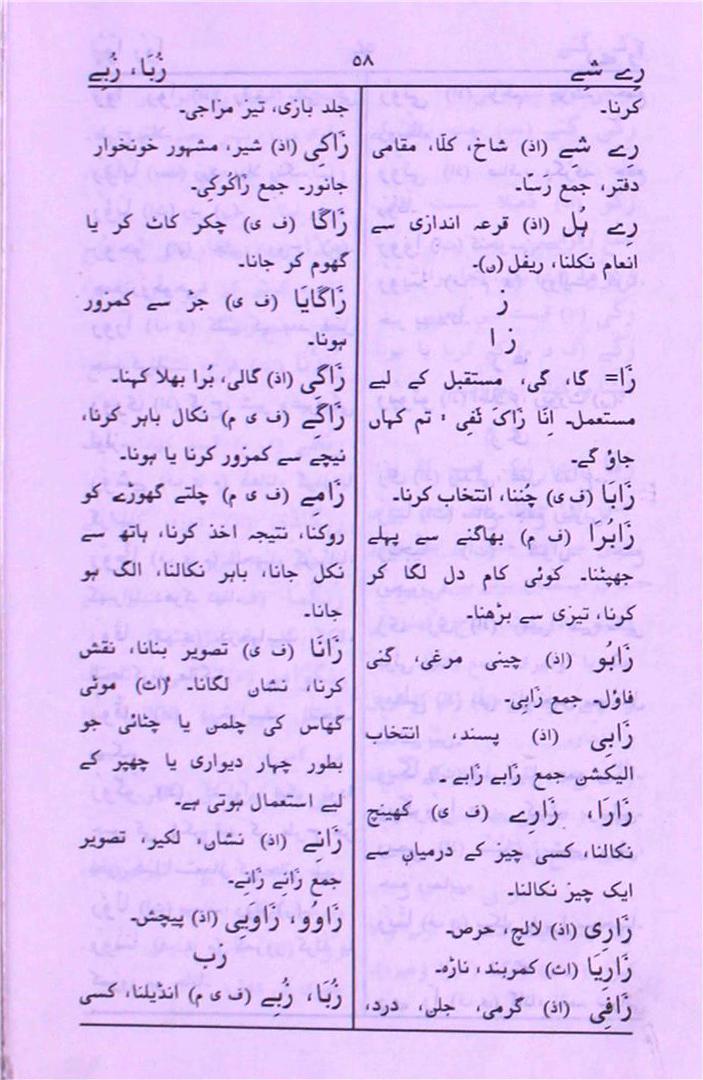 رِے شِے
۵۸
زُبَا، زُبِے
کرنا۔
رِے شِے (اذ) شاخ، کلّا، مقامی
دفتر، جمع رسّا۔
رِے ہُل (اذ) قرعہ اندازی سے
انعام نکلنا، ریفل (ں)۔
ز
زا
زَا= گا، گی، مستقبل کے لیے
مستعمل۔ اِنَا زَاکَ تَفِی : تم کہاں
جاؤ گے۔
زَابَا (ف ی) چُننا، انتخاب کرنا۔
زَابُرَا (ف م) بھاگنے سے پہلے
جھپٹنا۔ کوئی کام دل لگا کر
کرنا، تیزی سے بڑھنا۔
زَابُو (اذ) چینی مرغی، گنی
فاؤل۔ جمع زَابِی۔
زَابِی (اذ) پسند، انتخاب
الیکشن جمع زَابے زَابے۔
زَارا، زَارِے (ف ی) کھینچ
نکالنا، کسی چیز کے درمیان سے
ایک چیز نکالنا۔
زَارِی (اذ) لالچ، حرص۔
زَارِیَا (اث) کمربند، ناڑہ۔
زَافِی (اذ) گرمی، جلی، درد،
جلد بازی، تیز مزاجی۔
زَاکِی (اذ) شیر، مشہور خونخوار
جانور۔ جمع زَاکُوکِی۔
زَاگَا (ف ی) چکر کاٹ کر یا
گھوم کر جانا۔
زَاگَایَا (ف ی) جڑ سے کمزور
ہونا۔
زَاگِی (اذ) گالی، بُرا بھلا کہنا۔
زَاگے (ف ی م) نکال باہر کرنا،
نیچے سے کمزور کرنا یا ہونا۔
زَامِے (ف ی م) چلتے گھورے کو
روکنا، نتیجہ اخذ کرنا، ہاتھ سے
نکل جانا، باہر نکالنا، الگ ہو
جانا۔
زَانَا (ف ی) تصویر بنانا، نقش
کرنا، نشاں لگانا۔ (اث) موٹی
گھاس کی چلمن یا چٹائی جو
بطور چہار دیواری یا چھپر کے
لیے استعمال ہوتی ہے۔
زَانے (اذ) نشاں، لکیر، تصویر
جمع زَانے زَانے۔
زَاوُو، زَاوِیِی (اذ) پیچش۔
زَب
زُبَا، زُبِے (ف ی م) انڈیلنا، کسی